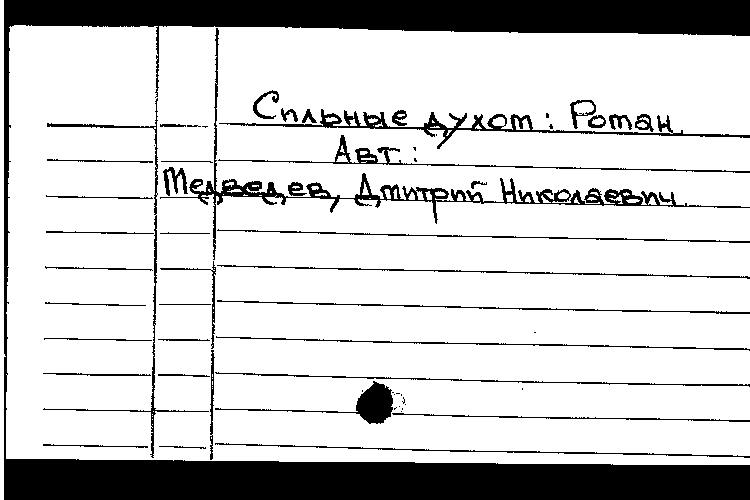 Сильные духом: Роман.
Авт.:
Медведев, Дмитрий Николаевич